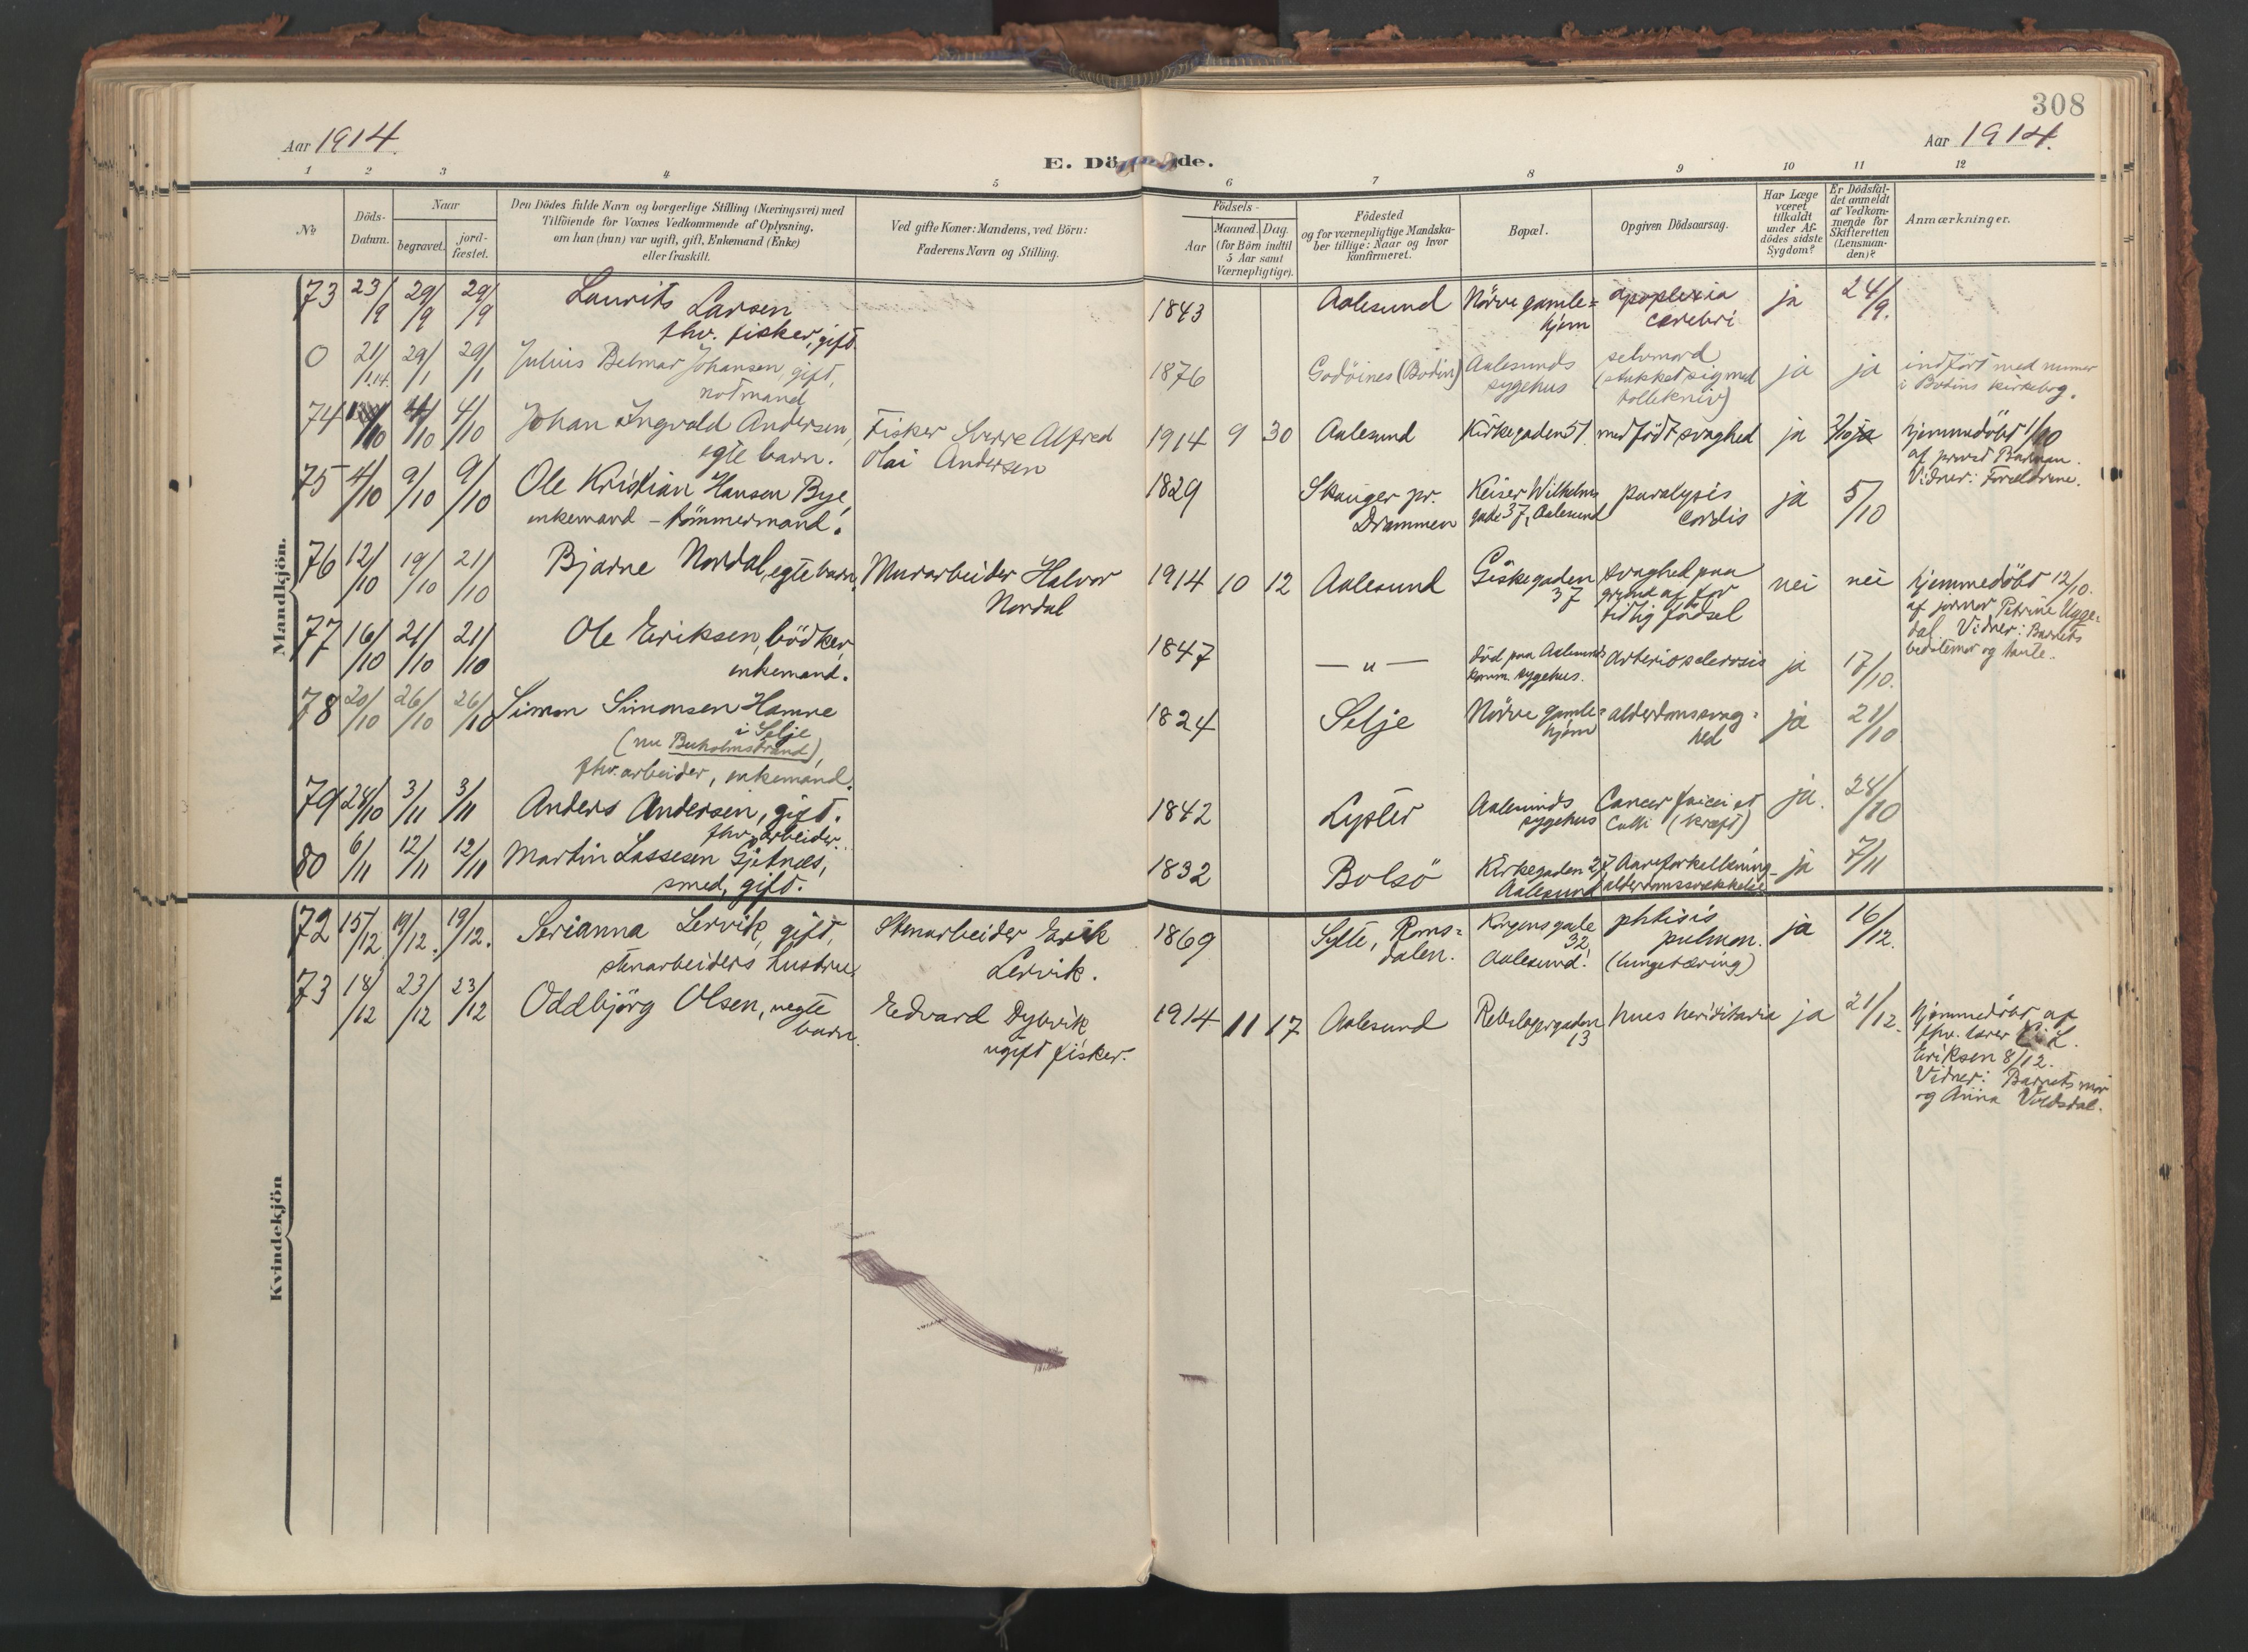 308
Aar 1914.
Aar 1914.
E. Dö de.
1 2 3 4 5 6 7 8 9 10 11 12
No
Döds-
Datum.
Naar
begravet.
jord-
fæstet.
Den Dödes fulde Navn og borgerlige Stilling (Næringsvei) med
Tilföiende for Voxnes Vedkommende af Oplysning,
om han (hun) var ugift, gift, Enkemand (Enke)
eller fraskilt.
Ved gifte Koner: Mandens, ved Börn:
Faderens Navn og Stilling.
Födsels-
Aar
Maaned. Dag.
(for Börn indtil
5 Aar samt
Værnepligtige).
Födested
og for værnepligtige Mandska-
ber tillige: Naar og hvor
konfirmeret.
Bopæl.
Opgiven Dödsaarsag.
Har Læge
været
tilkaldt
under Af-
dödes sidste
Sygdom?
Er Dödsfal-
det anmeldt
af Vedkom-
mende for
Skifteretten
(Lensman-
den)?
Anmærkninger.
Mandkjön.
73 23/9 29/9 29/9 Laurits Larsen
fhv. fisker, gift.
1843 Aalesund Nörve gamle=
hjem
apoplexia
cerebri
ja 24/9.
0 21/1.14. 29/1 29/1 Julius Belmar Johansen, gift,
notmand
1876 Godöines (Bodin) Aalesunds
sygehus
selvmord
(stukket sig med
tollekniv)
ja ja indfört med numer
i Bodins kirkebog.
74 /10 4/10 4/10 Johan Ingvald Andersen,
egte barn.
Fisker Sverre Alfred
Olai Andersen
1914 9 30 Aalesund Kirkegaden 51. medfödt svaghed ja 3/10 ja hjemmedöbt 1/10
af provst
Vidner: Foreldrene.
75 4/10 9/10 9/10 Ole Kristian Hansen Bye,
enkemand - tömmermand.
1829 Skauger pr.
Drammen
Keiser Wilhelms
gade 37, Aalesund
paralysis
cordis
ja 5/10
76 12/10 19/10 21/10 Bjarne Nordal, egte barn, Murarbeider Halvor
Nordal
1914 10 12 Aalesund Giskegaden
37
svaghed paa
grund af for
tidlig födsel
nei nei hjemmedöbt 12/10.
af jormor Petrine Ugge=
dal. Vidner: Barnets
bedstemor og tante.
77 16/10 21/10 21/10 Ole Eriksen, bödker,
enkemand.
1847 — " — död paa Aalesunds
komm. sygehus.
Arteriosclerosis ja 17/10.
78 20/10 26/10 26/10 Simon Simonsen Hamre
i Selje
(nu Buholmstrand),
fhv. arbeider, enkemand.
1824 Selje Nörve gamle=
hjem
alderdomssvag=
hed
ja 21/10
79 28/10 3/11 3/11 Anders Andersen, gift.
fhv. arbeider.
1842 Lyster Aalesunds
sygehus
Cancer faciei et
Colli (kræft)
ja. 28/10
80 6/11 12/11 12/11 Martin Lassesen Gjetnes,
smed, gift.
1832 Bolsö Kirkegaden 27,
Aalesund
Aareforkalkning
alderdomssvækkelse
ja 7/11
Kvindekjön
72 15/12 19/12. 19/12. Serianna Lervik, gift,
stenarbeiders hustru
Stenarbeider Erik
Lervik.
1869 Sylte, Roms=
dalen.
Kongensgade
32,
Aalesund.
phtisis
pulmon.
(lungetæring)
ja 16/12.
73 18/12 23/12 23/12 Oddbjörg Olsen, uegte
barn.
Edvard Dybvik
ugift fisker.
1914 11 17 Aalesund Rebslagergaden
13
lues heriditaria ja 21/12. hjemmedöbt af
fhv. lærer
Eriksen 8/12.
Vidner: Barnets mor
og Anna Voldsdal.